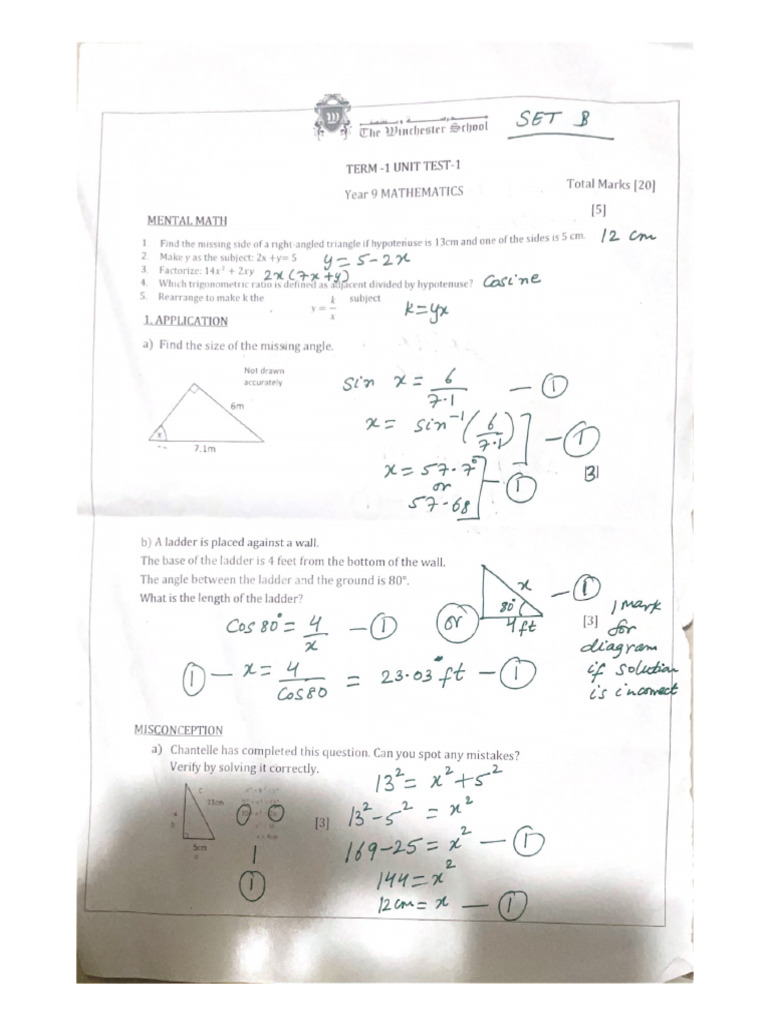 SET B
The Winchester School
TERM -1 UNIT TEST-1
Year 9 MATHEMATICS
Total Marks [20]
[5]
MENTAL MATH
1 Find the missing side of a right-angled triangle if hypotenuse is 13cm and one of the sides is 5 cm. 12 cm
2. Make y as the subject: 2x +y= 5 y = 5-2x
3. Factorize: 14x² + 2xy 2x(7x+y)
4. Which trigonometric ratio is defined as adjacent divided by hypotenuse? Cosine
5. Rearrange to make k the y = k/x subject k=yx
1. APPLICATION
a) Find the size of the missing angle.
Not drawn
accurately
6m
x
7.1m
sin x = 6/7.1 — 1
x = sin⁻¹(6/7.1) — 1
x = 57.7°
or — 1
57.68
[3]
b) A ladder is placed against a wall.
The base of the ladder is 4 feet from the bottom of the wall.
The angle between the ladder and the ground is 80°.
What is the length of the ladder?
[3]
Cos 80° = 4/x — 1
or
x
80°
4ft
— 1
1 mark
for
diagram
if solution
is incorrect
1 — x = 4/Cos80 = 23.03 ft — 1
MISCONCEPTION
a) Chantelle has completed this question. Can you spot any mistakes?
Verify by solving it correctly.
13cm
5cm
[3]
1
13² = x² + 5²
13² - 5² = x²
169-25 = x² — 1
144 = x²
12cm = x — 1